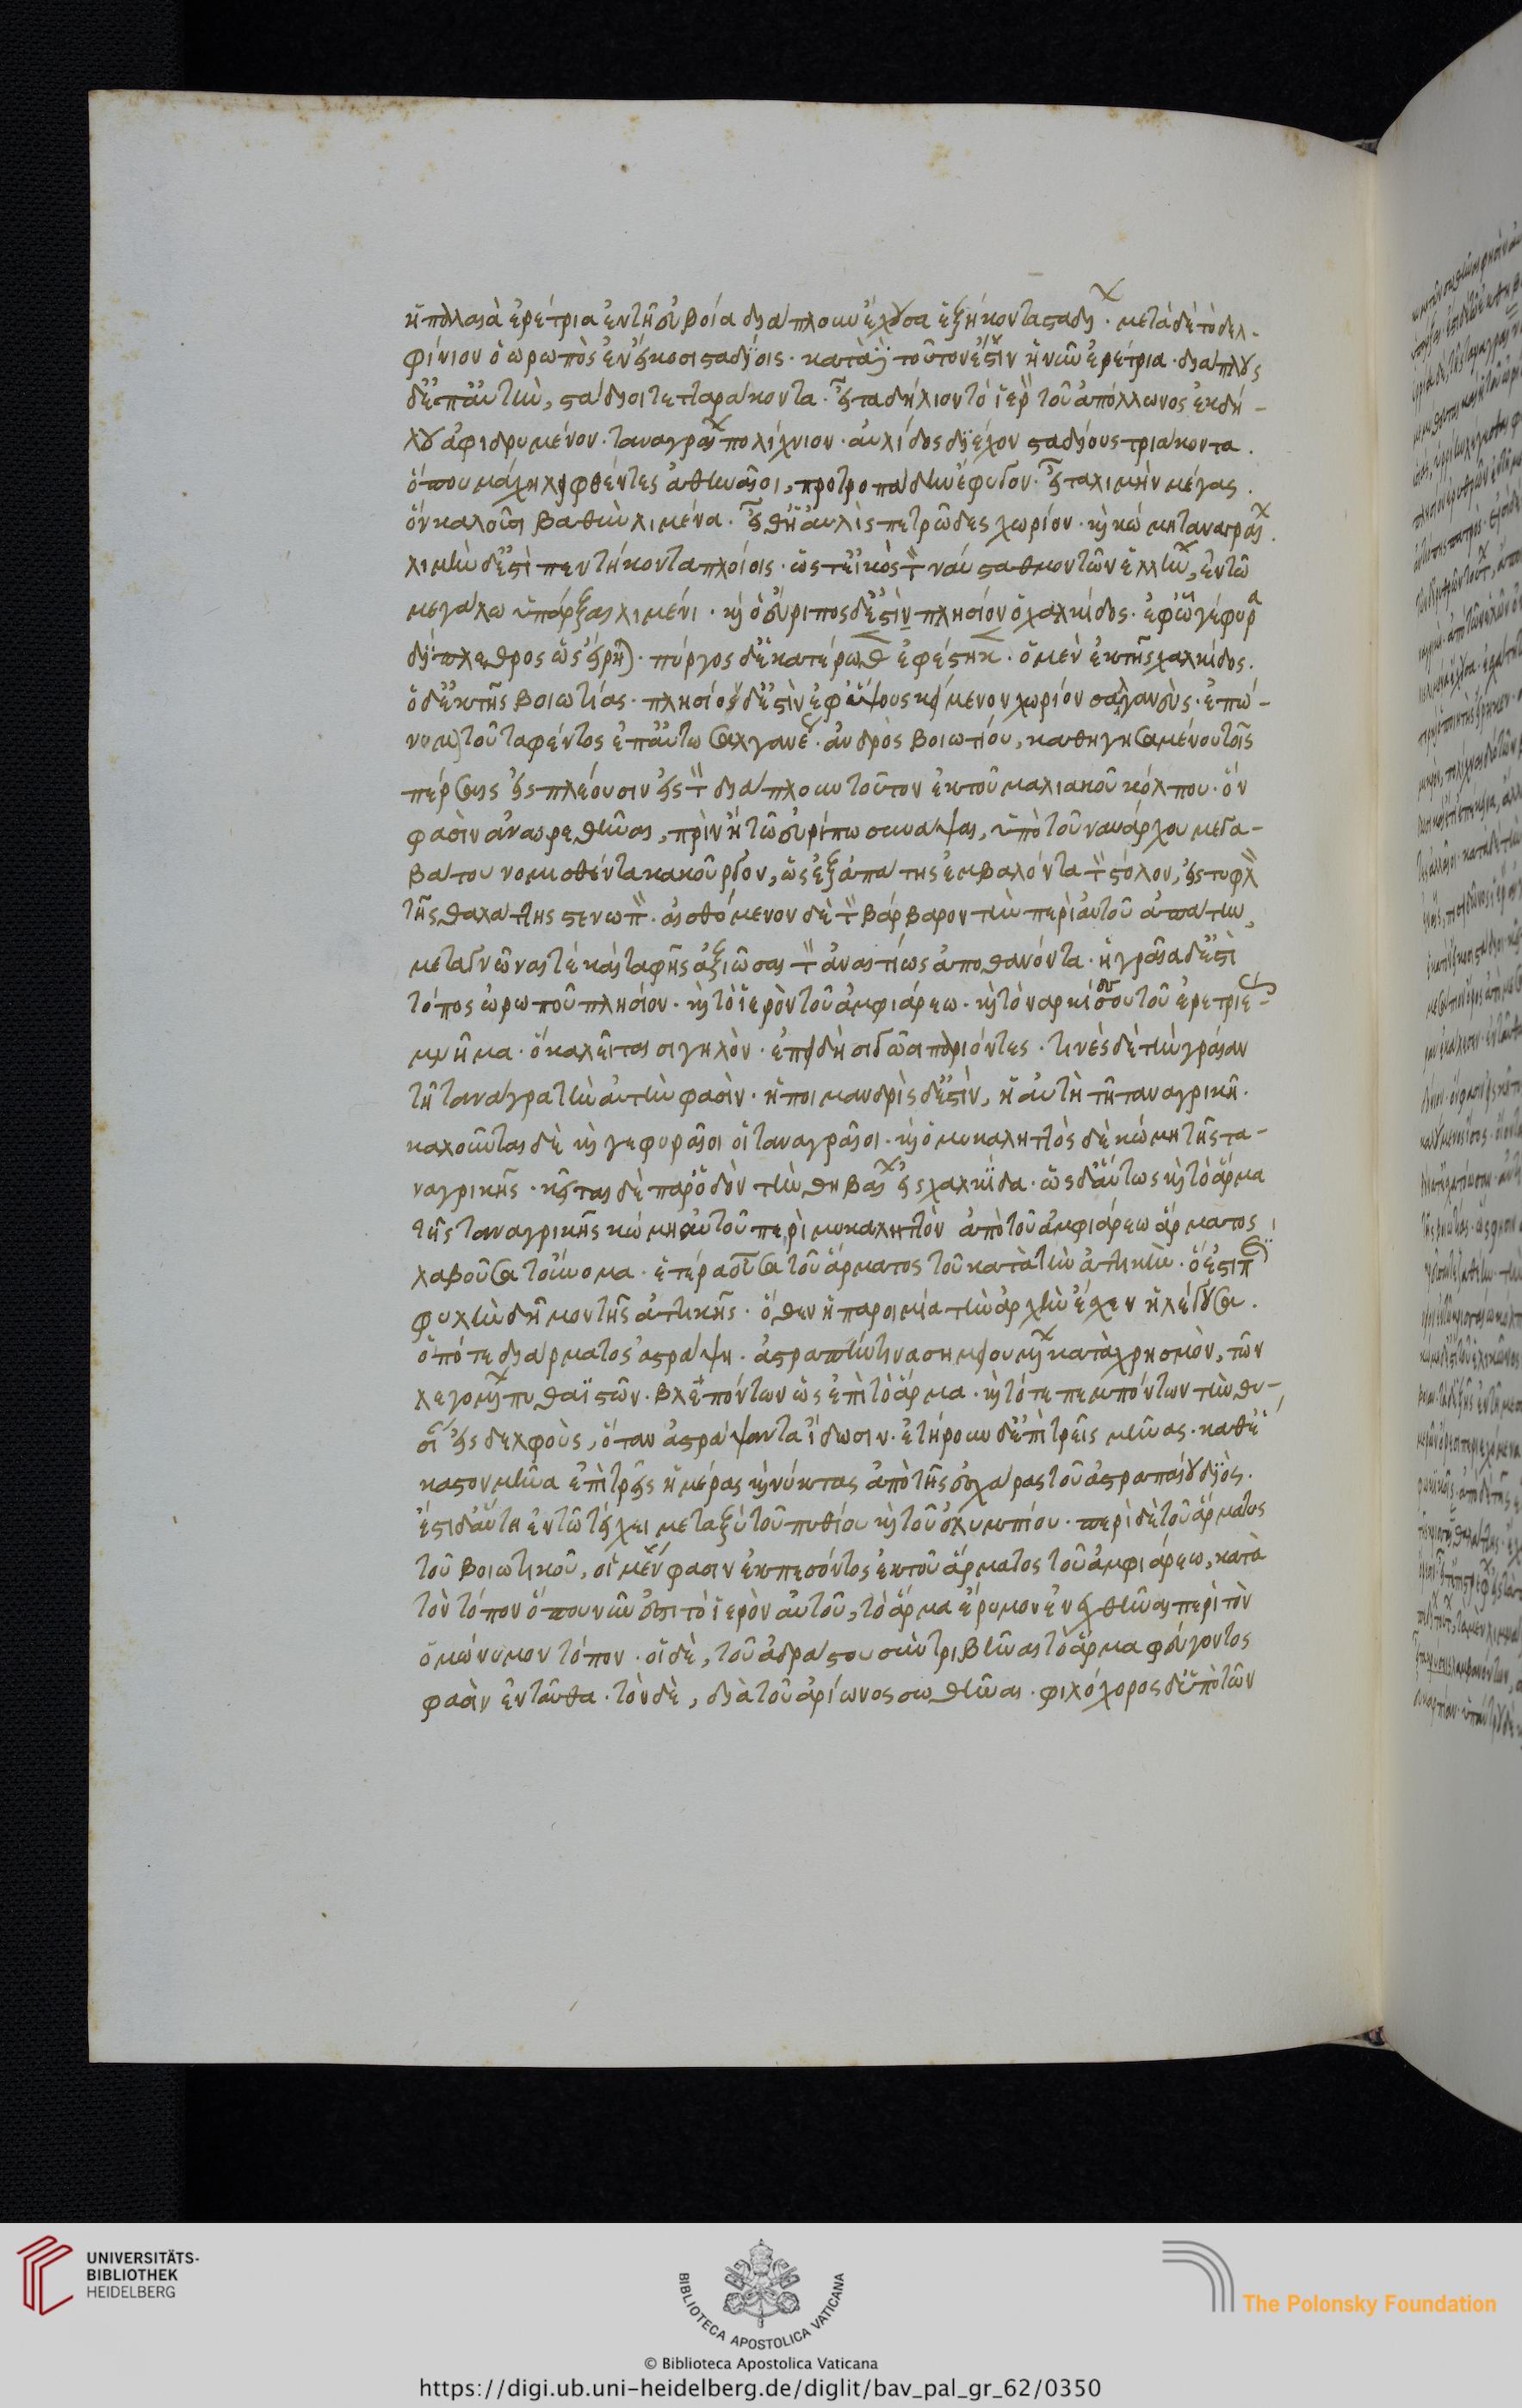 ἡ παλαιὰ ἐρέτρια ἐν τῇ εὐβοία διάπλουν ἔχουσα ἑξήκοντα σταδίων · μετὰ δὲ τὸ δελ-
φίνιον ὁ ὠρωπὸς ἐν εἴκοσι σταδίοις · κατὰ δὲ τοῦτόν ἐστιν ἡ νῦν ἐρέτρια · διάπλους
δ᾽ ἐπ᾽ αὐτὴν, στάδιοι τετταράκοντα · εἶτα δήλιον τὸ ἱερὸν τοῦ ἀπόλλωνος ἐκ δή-
λου ἀφιδρυμένον · ταναγραίων πολίχνιον · αὐλίδος διέχον σταδίους τριάκοντα ·
ὅπου μάχη λειφθέντες ἀθηναῖοι, προτροπάδην ἔφυγον · εἶτα λιμὴν μέγας ·
ὃν καλοῦσι βαθὺν λιμένα · εἶθ᾽ ἡ αὐλὶς πετρῶδες χωρίον · καὶ κώμη ταναγραίων ·
λιμὴν δ᾽ ἐστὶ πεντήκοντα πλοίοις · ὥστ᾽ εἰκὸς τὸν ναύσταθμον τῶν ἑλλήνων, ἐν τῶ
μεγάλω ὑπάρξαι λιμένι · καὶ ὁ εὔριπος δ᾽ ἐστὶν πλησίον ὁ χαλκίδος · ἐφ᾽ ᾧ γέφυρα
δίπλεθρος ὡς εἴρηται · πύργος δ᾽ ἑκατέρωθεν ἐφέστηκεν · ὁ μὲν ἐκ τῆς χαλκίδος ·
ὁ δ᾽ ἐκ τῆς βοιωτίας · πλησίον δ᾽ ἐστὶν ἐφ᾽ ὕψους κείμενον χωρίον σαλγανεὺς · ἐπώ-
νυμον τοῦ ταφέντος ἐπ᾽ αὐτῶ σαλγανέως · ἀνδρὸς βοιωτίου, καθηγησαμένου τοῖς
πέρσαις εἰσπλέουσιν εἰς τὸν διάπλουν τοῦτον ἐκ τοῦ μαλιακοῦ κόλπου · ὅν
φασὶν ἀναιρεθῆναι, πρὶν ἢ τῶ εὐρίπω συνάψαι, ὑπὸ τοῦ ναυάρχου μεγα-
βάτου νομισθέντα κακοῦργον, ὡς ἐξ ἀπάτης ἐμβαλόντα τὸν στόλον, εἰς τυφλὸν
τῆς θαλάττης στενωπὸν · αἰσθόμενον δὲ τὸν βάρβαρον τὴν περὶ αὐτοῦ ἀπάτην,
μεταγνῶναι τὲ καὶ ταφῆς ἀξιῶσαι τὸν ἀναιτίως ἀποθανόντα · ἡ γραῖα δ᾽ ἐστὶ
τόπος ὠρωποῦ πλησίον · καὶ τὸ ἱερὸν τοῦ ἀμφιάρεω · καὶ τὸ ναρκίσσου τοῦ ἐρετριέως
μνῆμα · ὃ καλεῖται σιγηλὸν · ἐπειδὴ σιγῶσι παριόντες · τινὲς δὲ τὴν γραίαν
τῇ τανάγρα τὴν αὐτὴν φασὶν · ἡ ποιμανδρὶς δ᾽ ἐστὶν, ἡ αὐτὴ τῇ ταναγρικῇ ·
καλοῦνται δὲ καὶ γεφυραῖοι οἱ ταναγραῖοι · καὶ ὁ μυκαληττὸς δὲ κώμη τῆς τα-
ναγρικῆς · κεῖται δὲ παρ᾽ ὁδὸν τὴν θηβαίων εἰς χαλκίδα · ὡς δ᾽ αὕτως καὶ τὸ ἅρμα
τῆς ταναγρικῆς κώμη αὐτοῦ περὶ μυκαληττὸν ἀπὸ τοῦ ἀμφιάρεω ἅρματος
λαβοῦσα τοὔνομα · ἑτέρα οὖσα τοῦ ἅρματος τοῦ κατὰ τὴν ἀττικὴν · ὅ ἐστι περὶ
φυλὴν δῆμον τῆς ἀττικῆς · ὅθεν ἡ παροιμία τὴν ἀρχὴν ἔσχεν ἡ λέγουσα ·
ὁπότε δι᾽ ἅρματος ἀστράψη · ἀστραπήν τινα σημειουμένων κατὰ χρησμὸν, τῶν
λεγομένων πυθαϊστῶν · βλεπόντων ὡς ἐπὶ τὸ ἅρμα · καὶ τότε πεμπόντων τὴν θυ-
σίαν εἰς δελφοὺς, ὅταν ἀστράψαντα ἴδωσιν · ἐτήρουν δ᾽ ἐπὶ τρεῖς μῆνας · καθ᾽ ἕ-
καστον μῆνα ἐπὶ τρεῖς ἡμέρας καὶ νύκτας ἀπὸ τῆς ἐσχάρας τοῦ ἀστραπαίου διός ·
ἔστι δ᾽ αὕτη ἐν τῶ τείχει μεταξὺ τοῦ πυθίου καὶ τοῦ ὀλυμπίου · περὶ δὲ τοῦ ἅρματος
τοῦ βοιωτικοῦ, οἱ μέν φασιν ἐκπεσόντος ἐκ τοῦ ἅρματος τοῦ ἀμφιάρεω, κατὰ
τὸν τόπον ὅπου νῦν ἐστι τὸ ἱερὸν αὐτοῦ, τὸ ἅρμα ἔρημον ἐνεχθῆναι περὶ τὸν
ὁμώνυμον τόπον · οἱ δὲ, τοῦ ἀδράστου συντριβῆναι τὸ ἅρμα φεύγοντος
φασὶν ἐνταῦθα · τὸν δὲ, διὰ τοῦ ἀρίωνος σωθῆναι · φιλόχορος δ᾽ ὑπὸ τῶν
UNIVERSITÄTS-
BIBLIOTHEK
HEIDELBERG
BIBLIOTECA APOSTOLICA VATICANA
The Polonsky Foundation
© Biblioteca Apostolica Vaticana
https://digi.ub.uni-heidelberg.de/diglit/bav_pal_gr_62/0350